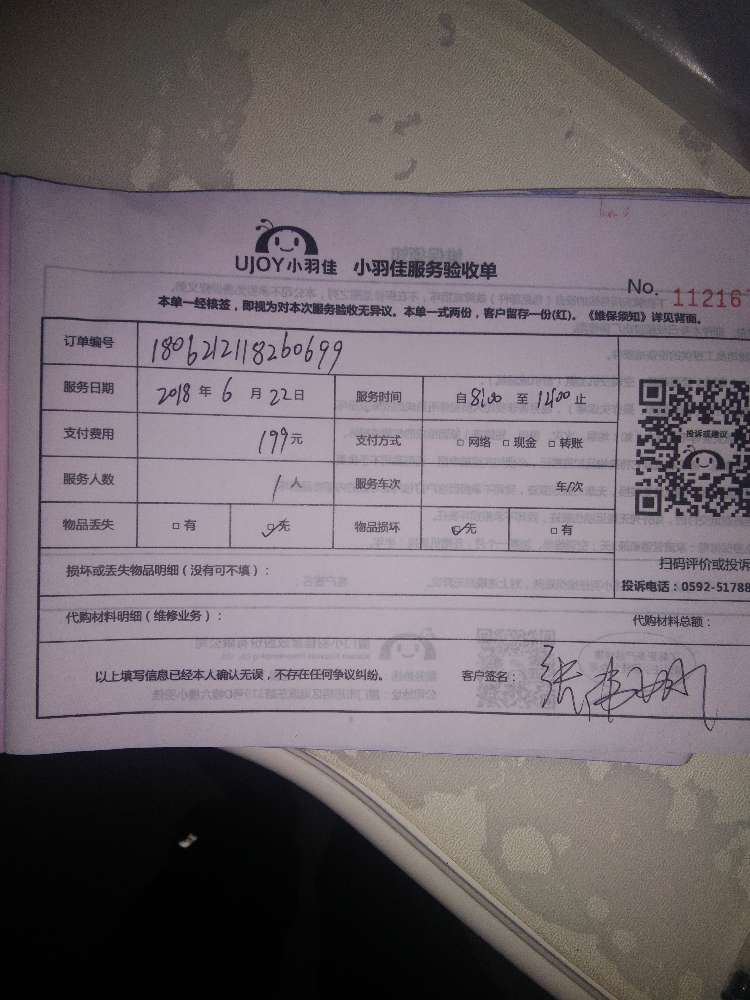 UJOY小羽佳 小羽佳服务验收单
No. 112167
本单一经核签，即视为对本次服务验收无异议。本单一式两份，客户留存一份(红)。《维保须知》详见背面。
订单编号 1806212118260699
服务日期 2018 年 6 月 22 日 服务时间 自 8:00 至 12:00 止
支付费用 199 元 支付方式 □ 网络 □ 现金 □ 转账
投诉或建议
服务人数 1 人 服务车次 年/次
物品丢失 □ 有 ☑ 无 物品损坏 ☑ 无 □ 有
扫码评价或投诉
损坏或丢失物品明细（没有可不填）：
投诉电话：0592-51788
代购材料明细（维修业务）： 代购材料总额：
以上填写信息已经本人确认无误，不存在任何争议纠纷。 客户签名： 张